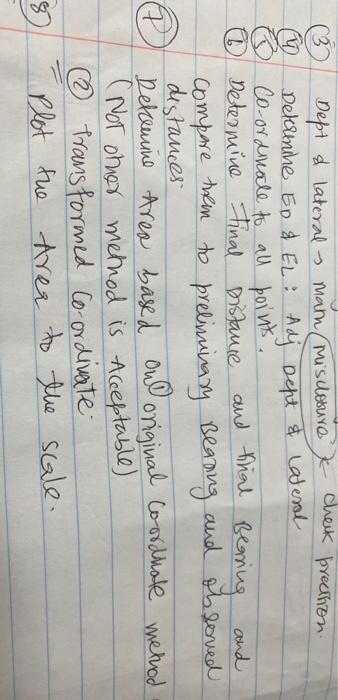 ③ Dept & lateral → main misclosure & check precision.
④ Determine ED & EL: Adj Dept & lateral
⑤ Co-ordinate to all points.
⑥ Determine Final Distance and final Bearing and
compare them to preliminary Bearing and observed
distances.
⑦ Determine Area based on ① original Coordinate method
(Not other method is Acceptable)
② Transformed Co-ordinate.
⑧ Plot the Area to the scale.